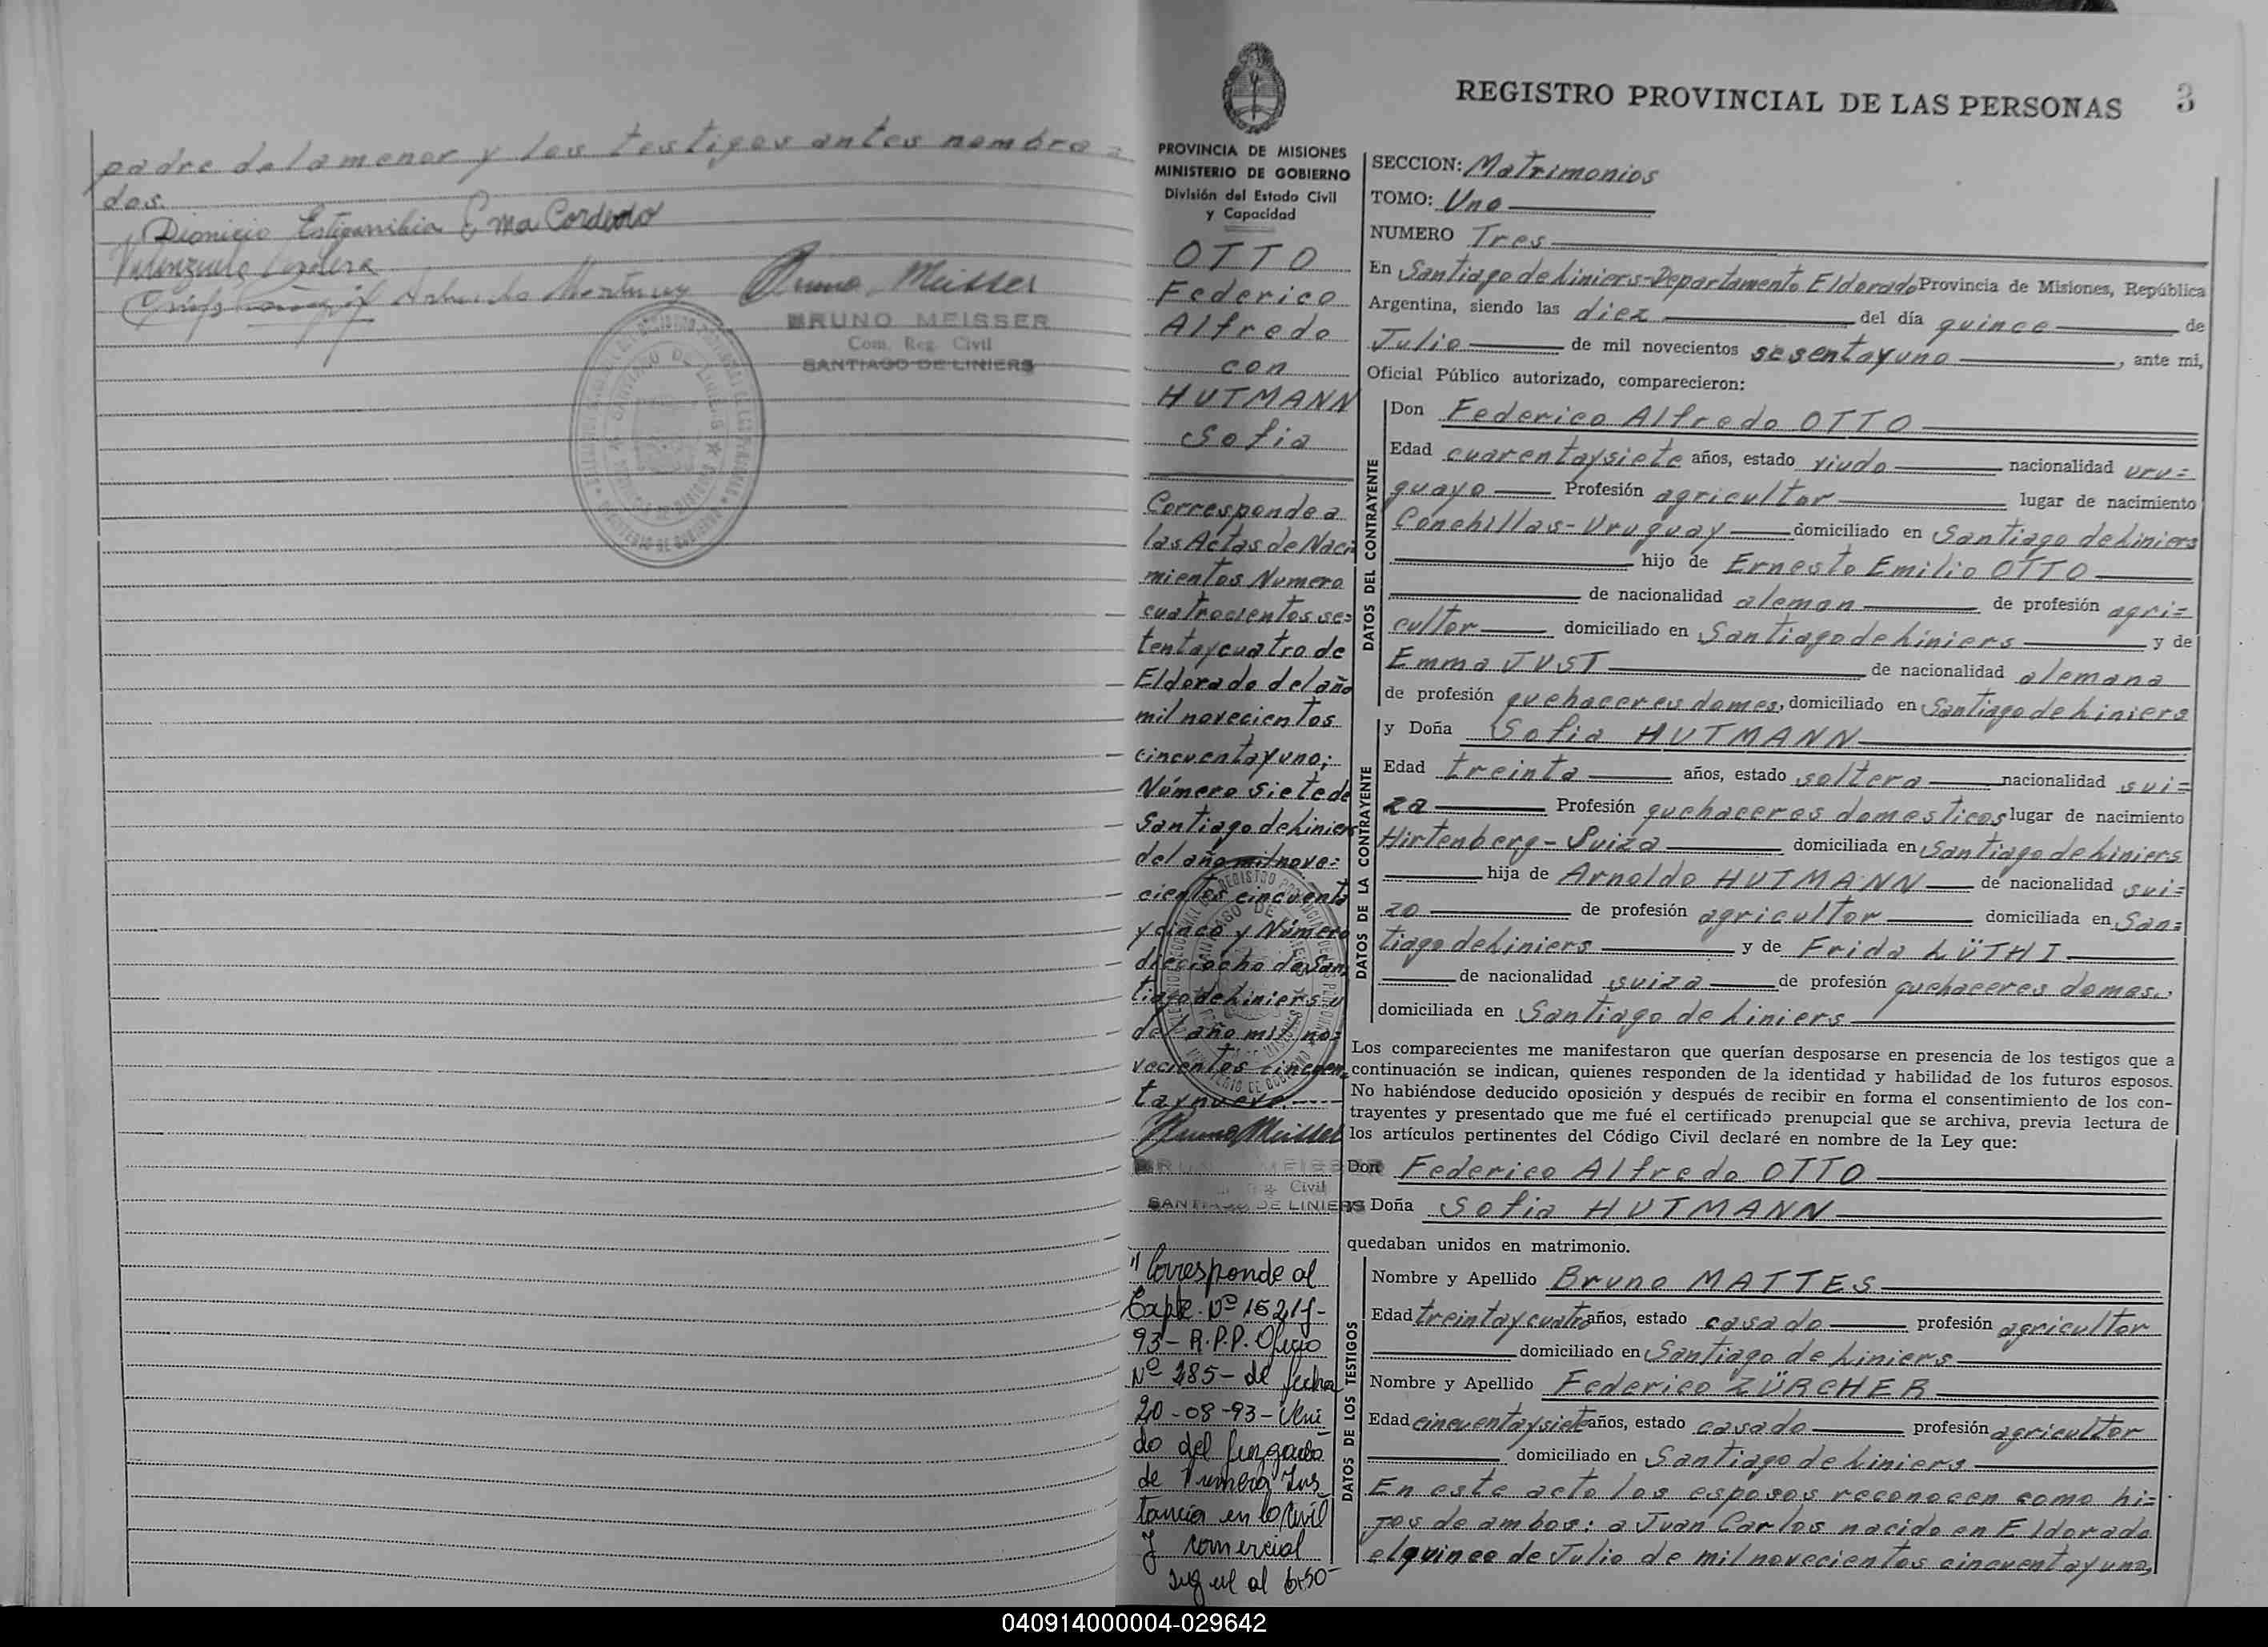 padre de la menor y los testigos antes nombra=
dos.
Dionicio Estigarribia Ema Cordero
Valenzuela
Bruno Meisser
BRUNO MEISSER
Com. Reg. Civil
SANTIAGO DE LINIERS
REGISTRO PROVINCIAL DE LAS PERSONAS 3
PROVINCIA DE MISIONES
MINISTERIO DE GOBIERNO
División del Estado Civil
y Capacidad
OTTO
Federico
Alfredo
con
HUTMANN
Sofia
Corresponde a
las Actas de Naci
mientos Numero
cuatrocientos se=
tentaycuatro de
Eldorado del año
mil novecientos
cincuentayuno;
Número Siete de
Santiago de Liniers
del año mil nove=
cientos cincuenta
y cinco y Número
dieciocho de San=
tiago de Liniers y
del año mil no=
vecientos cincuen=
taynueve.-----
Bruno Meisser
BRUNO MEISSER
Reg. Civil
SANTIAGO DE LINIERS
"Corresponde al
Expte. Nº 15219-
93- R.P.P. Oficio
Nº 285- de fecha
20-08-93-
do del Juzgado
de Primera Ins
tancia en lo Civil
y comercial
SECCION: Matrimonios
TOMO: Uno
NUMERO Tres
En Santiago de Liniers-Departamento Eldorado Provincia de Misiones, República
Argentina, siendo las diez del día quince de
Julio de mil novecientos sesentayuno, ante mi,
Oficial Público autorizado, comparecieron:
DATOS DEL CONTRAYENTE
Don Federico Alfredo OTTO
Edad cuarentaysiete años, estado viudo nacionalidad uru=
guayo Profesión agricultor lugar de nacimiento
Conchillas-Uruguay domiciliado en Santiago de Liniers
hijo de Ernesto Emilio OTTO
de nacionalidad aleman de profesión agri=
cultor domiciliado en Santiago de Liniers y de
Emma JUST de nacionalidad alemana
de profesión quehaceres domes, domiciliado en Santiago de Liniers
DATOS DE LA CONTRAYENTE
y Doña Sofia HUTMANN
Edad treinta años, estado soltera nacionalidad sui=
za Profesión quehaceres domesticos lugar de nacimiento
Hirtenberg-Suiza domiciliada en Santiago de Liniers
hija de Arnoldo HUTMANN de nacionalidad sui=
zo de profesión agricultor domiciliada en San=
tiago de Liniers y de Frida LÜTHI
de nacionalidad suiza de profesión quehaceres domes.,
domiciliada en Santiago de Liniers
Los comparecientes me manifestaron que querían desposarse en presencia de los testigos que a
continuación se indican, quienes responden de la identidad y habilidad de los futuros esposos.
No habiéndose deducido oposición y después de recibir en forma el consentimiento de los con-
trayentes y presentado que me fué el certificado prenupcial que se archiva, previa lectura de
los artículos pertinentes del Código Civil declaré en nombre de la Ley que:
Don Federico Alfredo OTTO
y Doña Sofia HUTMANN
quedaban unidos en matrimonio.
DATOS DE LOS TESTIGOS
Nombre y Apellido Bruno MATTES
Edad treintaycuatro años, estado casado profesión agricultor
domiciliado en Santiago de Liniers
Nombre y Apellido Federico ZÜRCHER
Edad cincuentaysiete años, estado casado profesión agricultor
domiciliado en Santiago de Liniers
En este acto los esposos reconocen como hi=
jos de ambos: a Juan Carlos nacido en Eldorado
el quince de Julio de mil novecientos cincuentayuno,
040914000004-029642